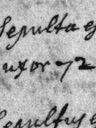 Sepulta e
uxor 72
Sepultus e